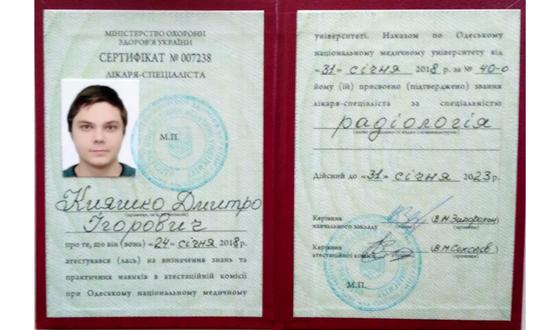 МІНІСТЕРСТВО ОХОРОНИ
ЗДОРОВ'Я УКРАЇНИ
СЕРТИФІКАТ № 007238
ЛІКАРЯ-СПЕЦІАЛІСТА
М.П.
Кияшко Дмитро
Ігорович
про те, що він (вона) «24» січня 2018р.
атестувався (лась) на визначення знань та
практичних навиків в атестаційній комісії
при Одеському національному медичному
університеті. Наказом по Одеському
національному медичному університету від
«31» січня 2018 р. за № 40-о
йому (їй) присвоєно (підтверджено) звання
лікаря-спеціаліста за спеціальністю
радіологія
Дійсний до «31» січня 2023р.
Керівник
навчального закладу
Керівник
атестаційної комісії
М.П.